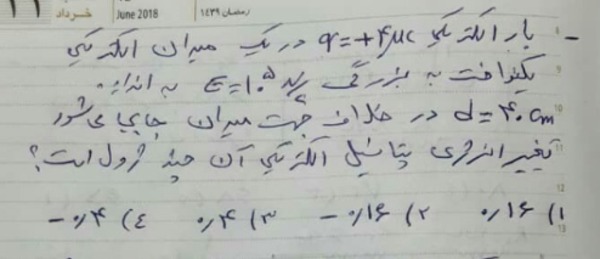 خرداد June 2018 رمضان ۱۴۳۹
- بار الکتریکی q=+۴μc در یک میدان الکتریکی
یکنواخت به بزرگی E=۱۰^۵ به اندازه
d=۴۰ cm در خلاف جهت میدان جابجا می‌شود
تغییر انرژی پتانسیل الکتریکی آن چند ژول است؟
۱) ۰/۱۶ ۲) -۰/۱۶ ۳) ۰/۴ ۴) -۰/۴